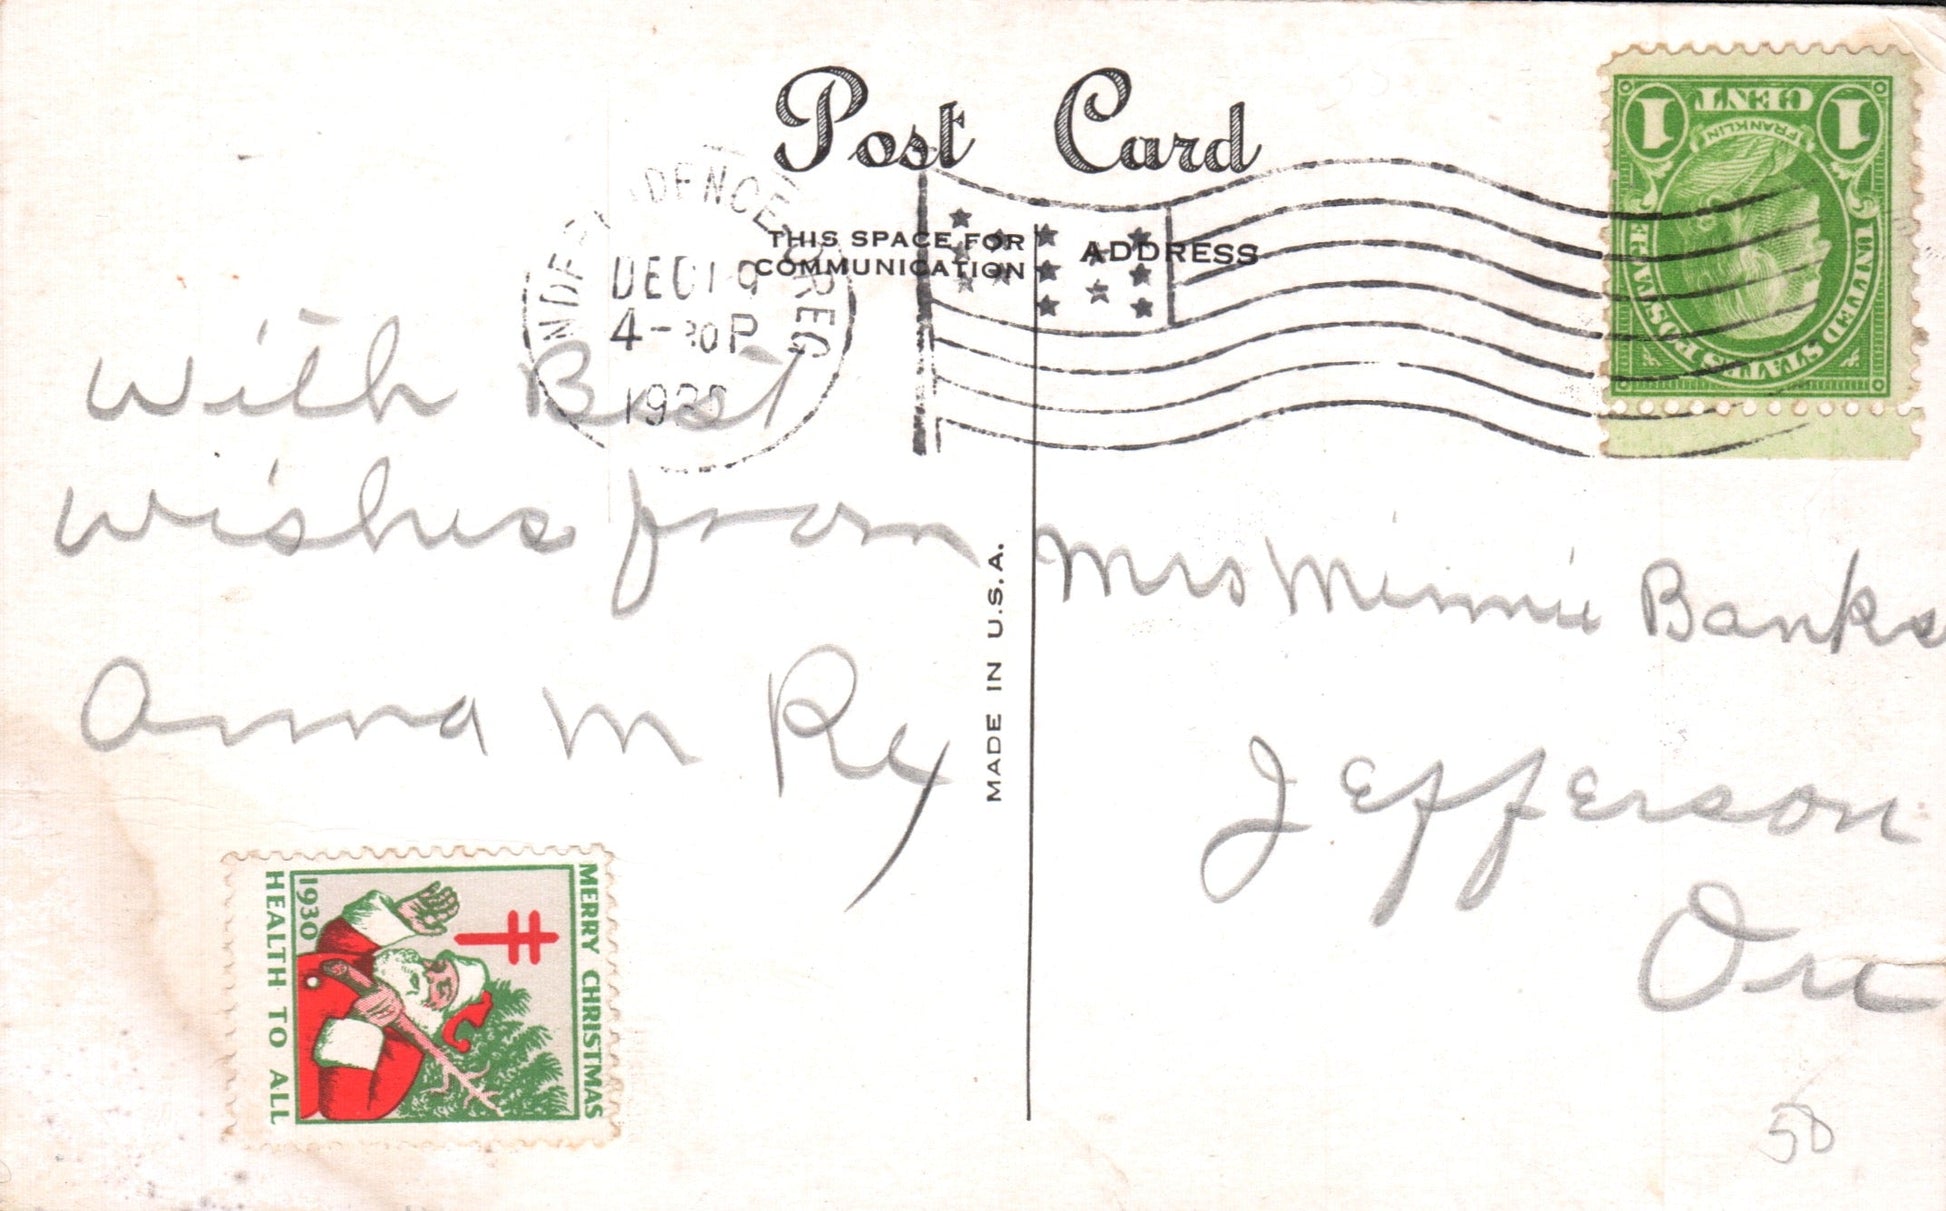 Post Card
THIS SPACE FOR
COMMUNICATION
ADDRESS
DEC 19
4-30 P
CENT
1 1
FRANKLIN
UNITED STATES POSTAGE
With Best
wishes from
Anna M Rex
MADE IN U.S.A.
Mrs Minnie Banks
Jefferson
Ore
MERRY CHRISTMAS
1930
HEALTH TO ALL
50